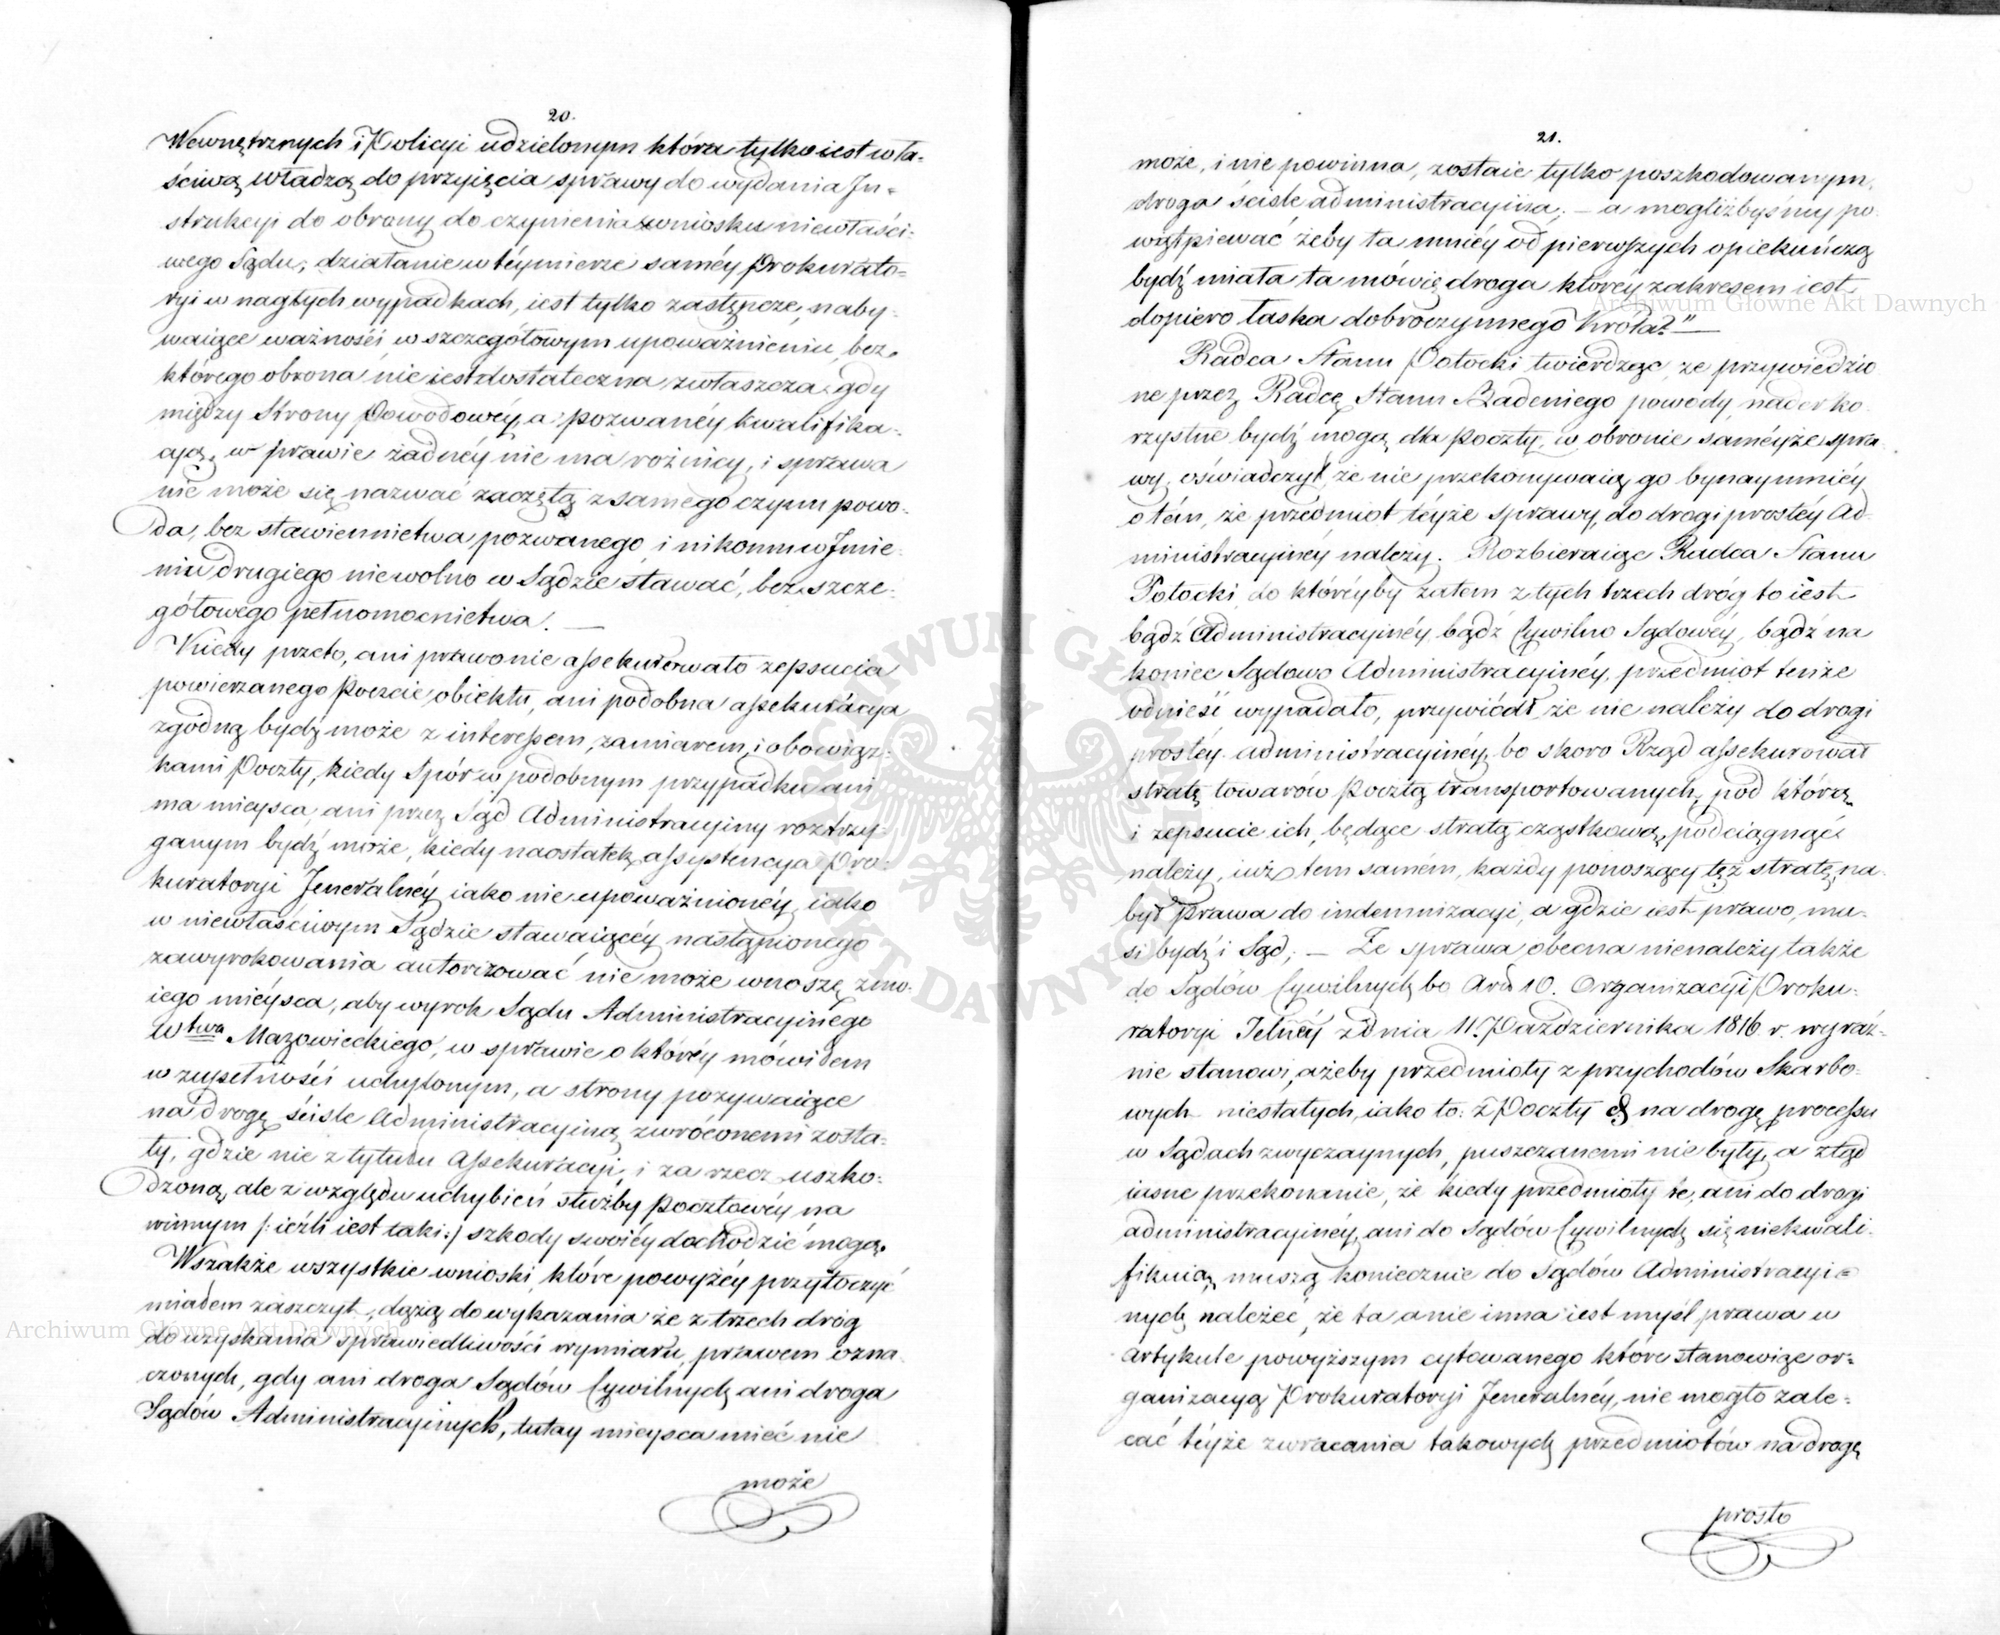 20.
Wewnętrznych i Policyi udzielonym która tylko iest wła-
ściwą władzą do przyięcia sprawy do wydania In-
strukcyi do obrony do czynienia wniosku niewłaści-
wego Sądu; działanie w téymierze saméy Prokurato-
ryi w nagłych wypadkach, iest tylko zastępcze, naby-
waiące ważności w szczegółowym upoważnieniu, bez
którego obrona nie iest dostateczna, zwłaszcza gdy
między Strony Powodowéy, a pozwanéy kwalifika-
cyą, w prawie żadnéy nie ma rożnicy, i sprawa
nie może się nazwać zaczętą z samego czynu powo-
da, bez stawiennictwa pozwanego i nikomu w Imie-
niu drugiego nie wolno w Sądzie stawać, bez szcze-
gółowego pełnomocnictwa. —
Kiedy przeto, ani prawo nie assekurowało zepsucia
powierzanego Poczcie obiektu, ani podobna assekuracya
zgodną bydź może z interessem, zamiarem, i obowiąz-
kami Poczty, kiedy Spór w podobnym przypadku ani
ma mieysca, ani przez Sąd Administracyiny roztrzy-
ganym bydź może, kiedy naostatek assystencya Pro-
kuratoryi Jeneralnéy iako nie upoważnionéy, iako
w niewłaściwym Sądzie stawaiącéy nastąpionego
zawyrokowania autorizować nie może wnoszę z mo-
iego mieysca, aby wyrok Sądu Administracyinego
Wtwa Mazowieckiego, w sprawie o któréy mówiłem
w zupełności uchylonym, a strony pozywaiące
na drogę ściśle Administracyiną zwróconemi zosta-
ły, gdzie nie z tytułu Assekuracyi, i za rzecz uszko-
dzoną, ale z względu uchybień służby Pocztowéy na
winnym /: ieźli iest taki :/ szkody swoiéy dochodzić mogą.
Wszakże wszystkie wnioski, które powyżéy przytoczyć
miałem zaszczyt, dążą do wykazania że z trzech dróg
do uzyskania sprawiedliwości wymiaru, prawem ozna-
czonych, gdy ani droga Sądów Cywilnych ani droga
Sądów Administracyinych, tutay mieysca mieć nie
może
21.
może, i nie powinna, zostaie tylko poszkodowanym,
droga ściśle administracyina; — a mogliżbyśmy po-
wątpiewać żeby ta mniéy od pierwszych opiekuńczą
bydź miała ta mówię droga któréy zakresem iest
dopiero łaska dobroczynnego Króla?" —
Radca Stanu Potocki twierdząc, że przywiedzio-
ne przez Radcę Stanu Badeniego powody nader ko-
rzystne bydź mogą dla Poczty, w obronie saméyże spra-
wy, oświadczył, że nie przekonywaią go bynaymniéy
o tém, że przedmiot téyże sprawy, do drogi prostéy Ad-
ministracyinéy należy. Rozbieraiąc Radca Stanu
Potocki, do któréyby zatem z tych trzech dróg to iest
bądź Administracyinéy bądź Cywilno Sądowéy, bądź na
koniec Sądowo Administracyinéy, przedmiot tenże
odnieść wypadało, przywiódł, że nie należy do drogi
prostéy administracyinéy, bo skoro Rząd assekurował
stratę towarów Pocztą transportowanych, pod którą
i zepsucie ich, będące stratą cząstkową, podciągnąć
należy, iuż tem samém, każdy ponoszący tęż stratę, na-
był Prawa do indemnizacyi, a gdzie iest prawo, mu-
si bydź i Sąd; — Ze sprawa obecna nienależy także
do Sądów Cywilnych bo Art. 10. Organizacyi Proku-
ratoryi Jelnéy z dnia 11. Października 1816 r. wyraź-
nie stanowi, ażeby przedmioty z przychodów Skarbo-
wych niestałych, iako to: z Poczty & na drogę processu
w Sądach zwyczaynych, puszczanemi nie były, a ztąd
iasne przekonanie, że kiedy przedmioty te, ani do drogi
administracyinéy, ani do Sądów Cywilnych się niekwali-
fikuią, muszą koniecznie do Sądów Administracyi-
nych należeć, że ta a nie inna iest myśl prawa w
Artykule powyższym cytowanego które stanowiąc or-
ganizacyą Prokuratoryi Jeneralnéy, nie mogło zale-
cać téyże zwracania takowych przedmiotów na drogę
prosto
Archiwum Główne Akt Dawnych
Archiwum Główne Akt Dawnych
ARCHIWUM GŁÓWNE AKT DAWNYCH